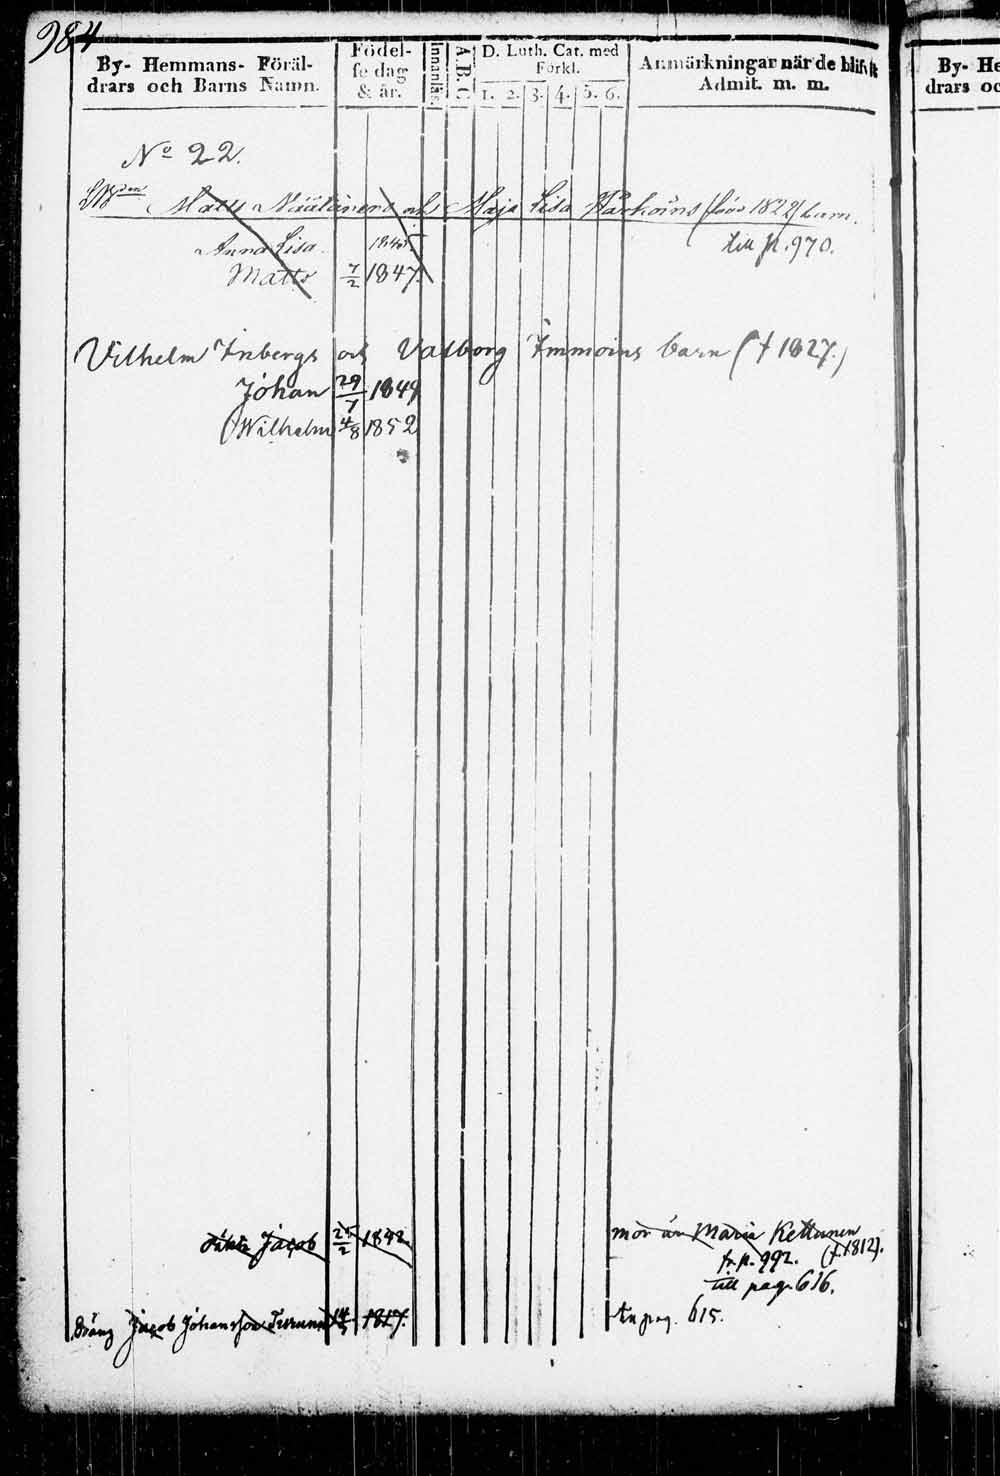 984
By- Hemmans- Föräl-
drars och Barns Namn.
Födel-
se dag
& år.
Innanläs.
A.B.C.
D. Luth. Cat. med
Förkl.
1. 2. 3. 4. 5. 6.
Anmärkningar när de blifvit
Admit. m. m.
By- He
drars oc
No 22.
Matts Näätänens och Maja Lisa Parkoins (född 1822) barn.
Anna Lisa 1845 till p. 970.
Matts 7/2 1847.
Vilhelm Inbergs och Valborg Immoins barn (f 1827.)
Johan 29/7 1849
Wilhelm 4/8 1852
Jacob 25/2 1842 mor är Maria Kettunen
fr. p. 992. (f. 1812).
till pag. 616.
Dräng Jacob Johansson Turunen 14 1817. An pag. 615.